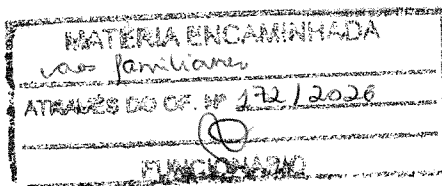 MATERIA ENCAMINHADA
aos familiares
ATRAVÉS DO OF. Nº 172/2026
FUNCIONARIO